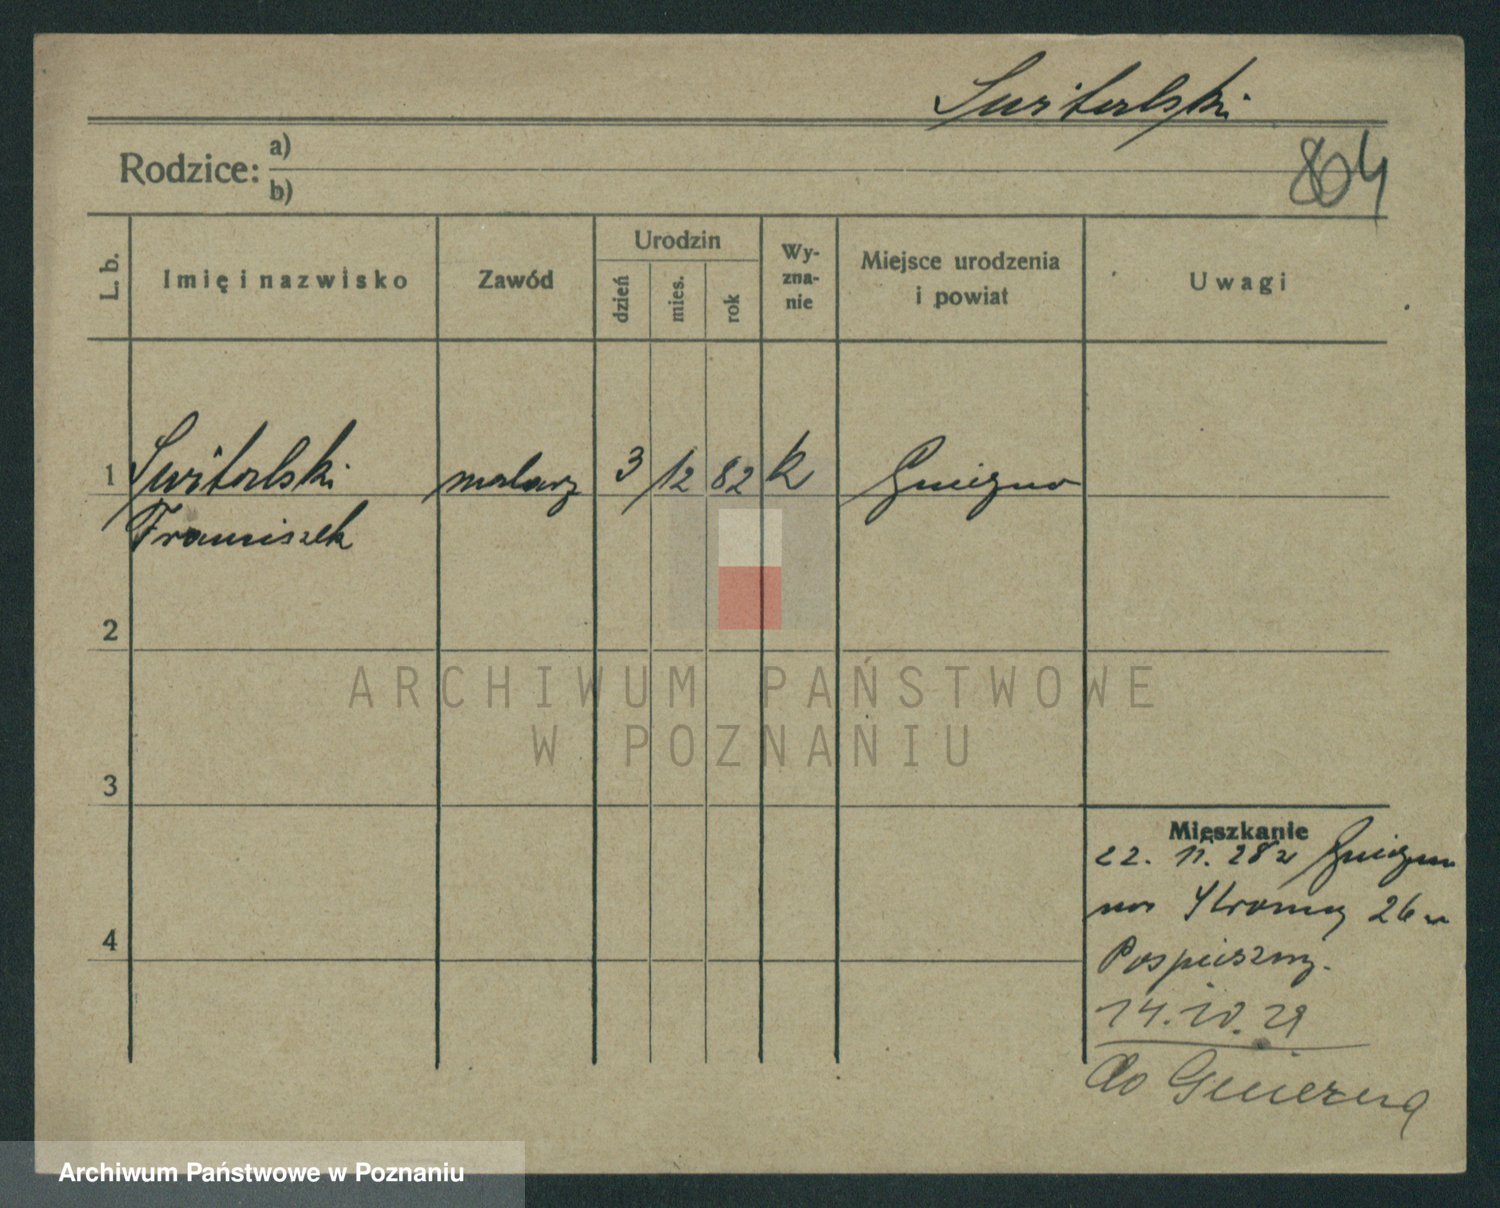 Switalski
Rodzice: a)
b)
804
L. b.
Imię i nazwisko
Zawód
Urodzin
dzień
mies.
rok
Wy-
zna-
nie
Miejsce urodzenia
i powiat
Uwagi
1 Switalski malarz 3 12 82 k Gniezno
Franciszek
2
3
4
Mieszkanie
22. 11. 28 z Gniezna
na Stromą 26 u
14. 10. 29
do Gniezna
ARCHIWUM PAŃSTWOWE
W POZNANIU
Archiwum Państwowe w Poznaniu